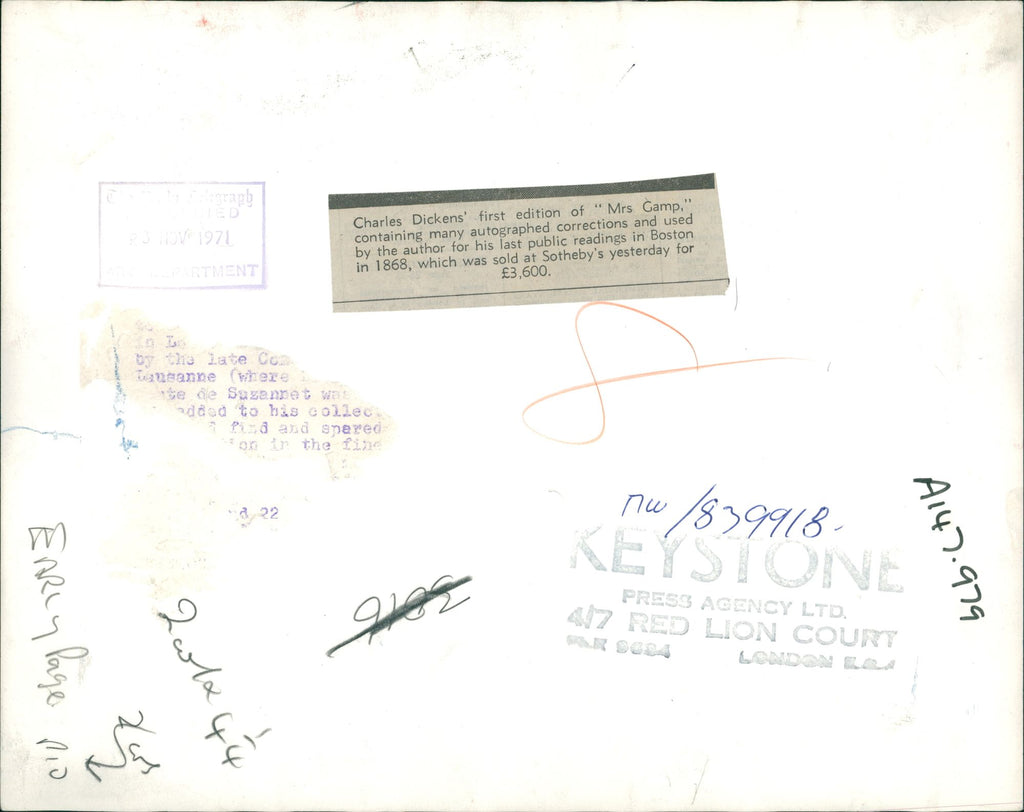 1971
DEPARTMENT
Charles Dickens' first edition of "Mrs Gamp,"
containing many autographed corrections and used
by the author for his last public readings in Boston
in 1868, which was sold at Sotheby's yesterday for
£3,600.
in
by the late
Lausanne (where
de Suzannet was
added to his
find and spared
in the
22
/839918.
KEYSTONE
PRESS AGENCY LTD.
4/7 RED LION COURT
LONDON
A147.979
EARLY Page